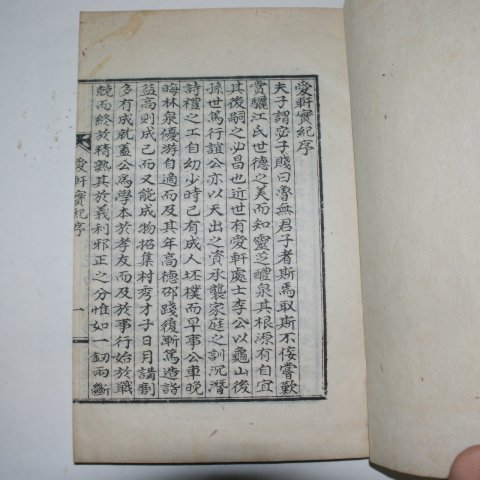 愛軒實紀序
夫子謂宓子賤曰魯無君子者斯焉取斯不佞嘗歎
賞驪江氏世德之美而知靈芝醴泉其根源有自宜
其後嗣之必昌也近世有愛軒處士李公以龜山後
孫世篤行誼公亦以天出之資承襲家庭之訓沉潛
詩禮之工自幼少時已有成人坯樸而早事公車晩
晦林泉優游自適而及其年高德邵踐復斬篤造詣
益高則成己而又能成物招集村秀才子日月講劘
多有成就盖公爲學本於孝友而及於事行始於戰
兢而終於精熟其於義利邪正之分惟如一釰兩斷
愛軒實紀序
一